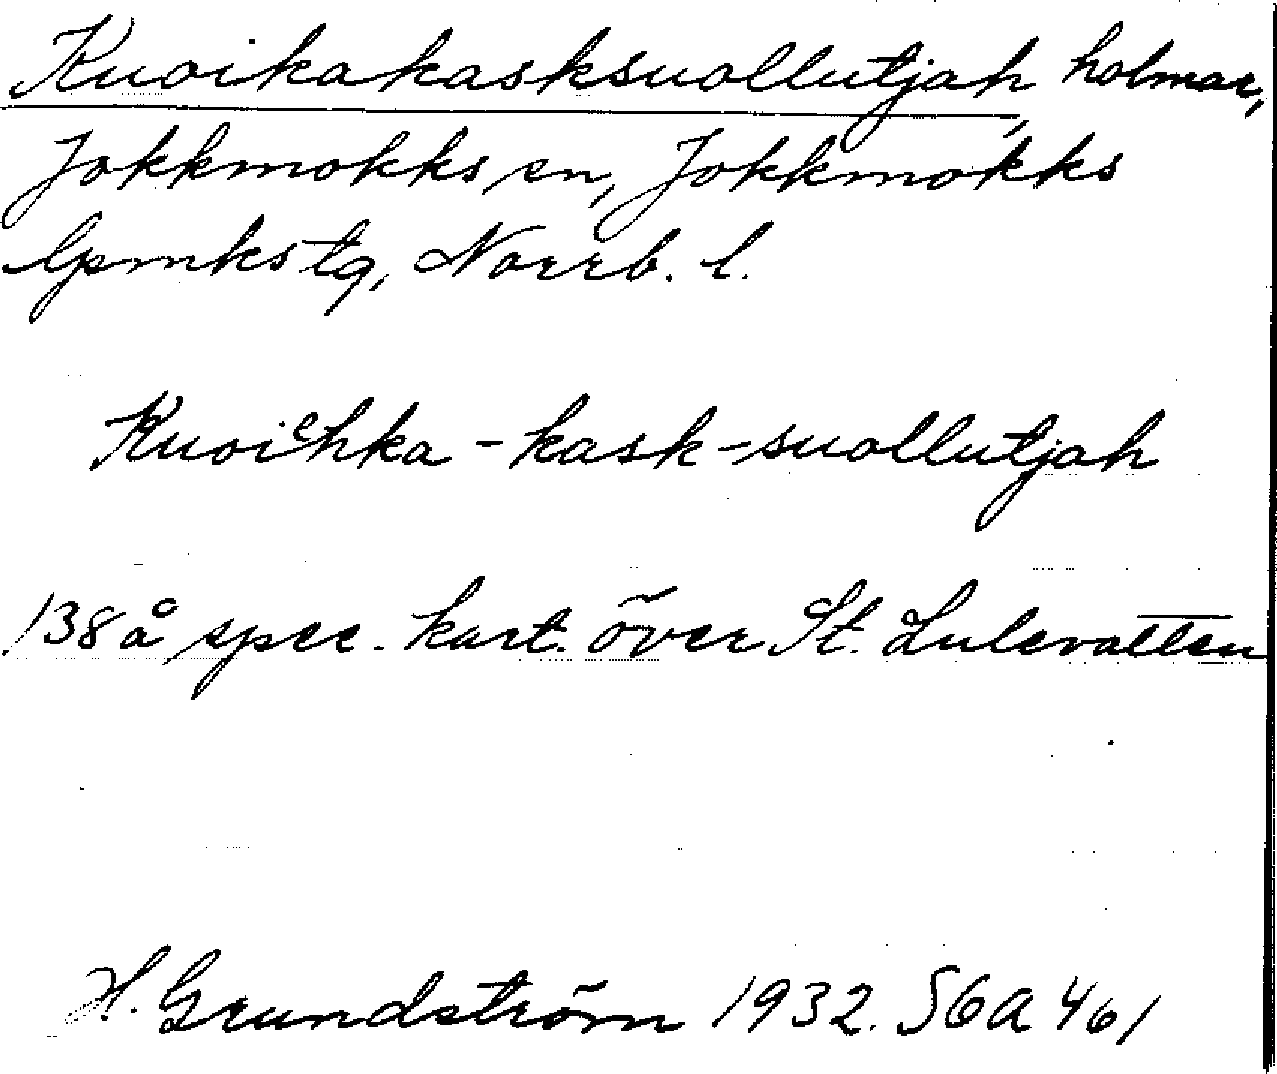 Kuoikakasksuollutjah, holmar,
Jokkmokks sn, Jokkmokks
lpmkstg, Norrb. l.
Kuoiᵉhka - kask - suollutjah
138 å spec. kart. över St. Lulevatten
H. Grundström 1932. SGA 461